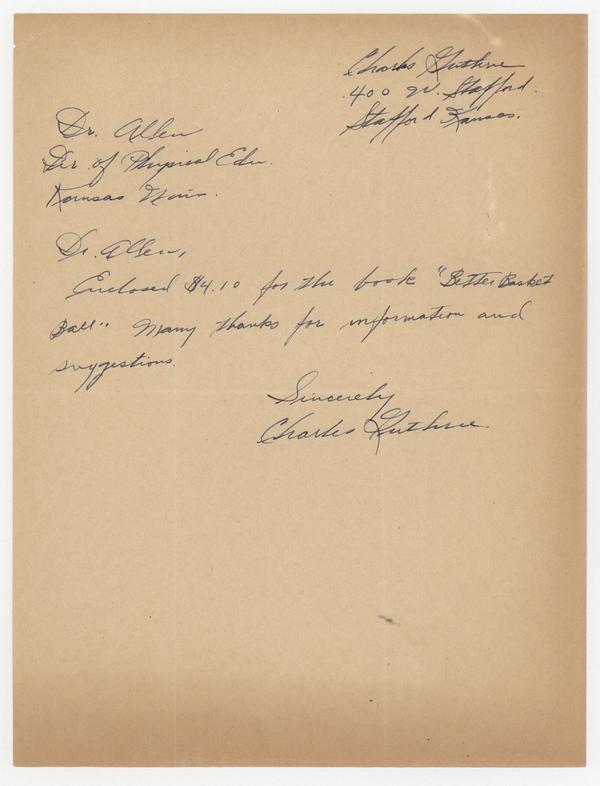 Charles Guthrie
400 W. Stafford.
Stafford Kansas.
Dr. Allen
Dir. of Physical Edu.
Kansas Univ.
Dr. Allen,
Enclosed $4.10 for the book "Better Basket
Ball". Many thanks for information and
suggestions.
Sincerely
Charles Guthrie